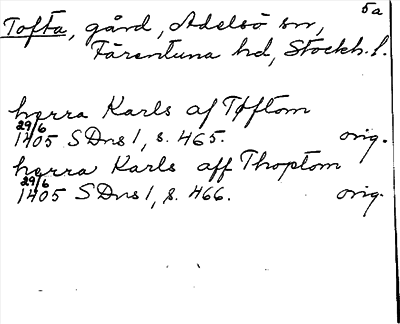 5a
Tofta, gård, Adelsö sn,
Färentuna hd, Stockh. l.
herra Karls af Tøftom
29/6
1405 SDns 1, s. 465. orig.
herra Karls aff Thoptom
29/6
1405 SDns 1, s. 466. orig.